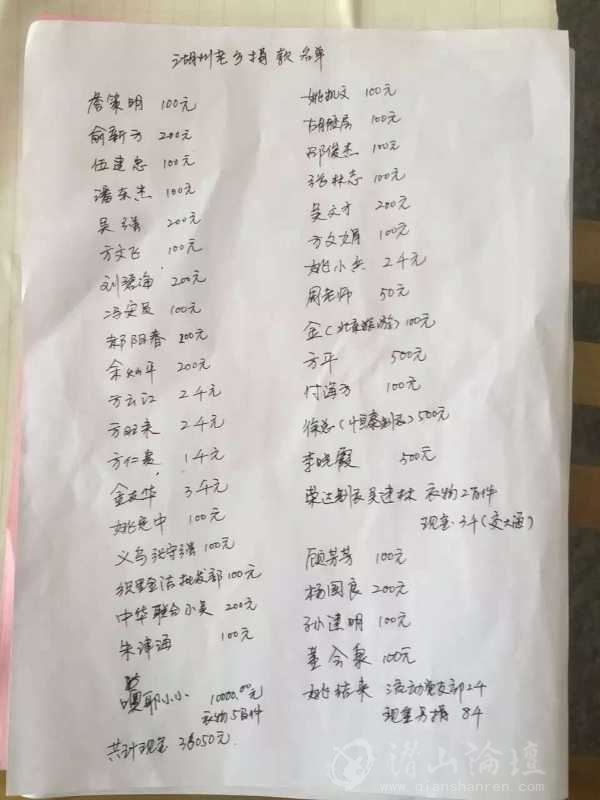 湖州老乡捐款名单
詹策明 100元
俞新方 200元
伍建忠 100元
潘东杰 100元
吴强 200元
方文飞 100元
刘碧海 200元
冯安民 100元
郝阳春 200元
余灿平 200元
方云江 2千元
方旺来 2千元
方仁贵 1千元
金友华 3千元
姚先中 100元
义乌张守强 100元
织里金洁批发部 100元
中华联合小吴 200元
朱泽海 100元
耶小小 10000.00元
衣物5百件
共计现金 38050元
姚凯文 100元
胡胜居 100元
邵俊杰 100元
张林志 100元
吴文才 200元
方文娟 100元
姚小兵 2千元
周老师 50元
金(北京旅险) 100元
方平 500元
付海方 100元
徐总(恒泰制衣) 500元
李晓霞 500元
荣达制衣吴建林 衣物2百件
现金3千(交大函)
顾芳芳 100元
杨国良 200元
孙建明 100元
董会泉 100元
姚结来 流动党支部2千
现金另捐 8千
潜山论坛
www.qianshanren.com